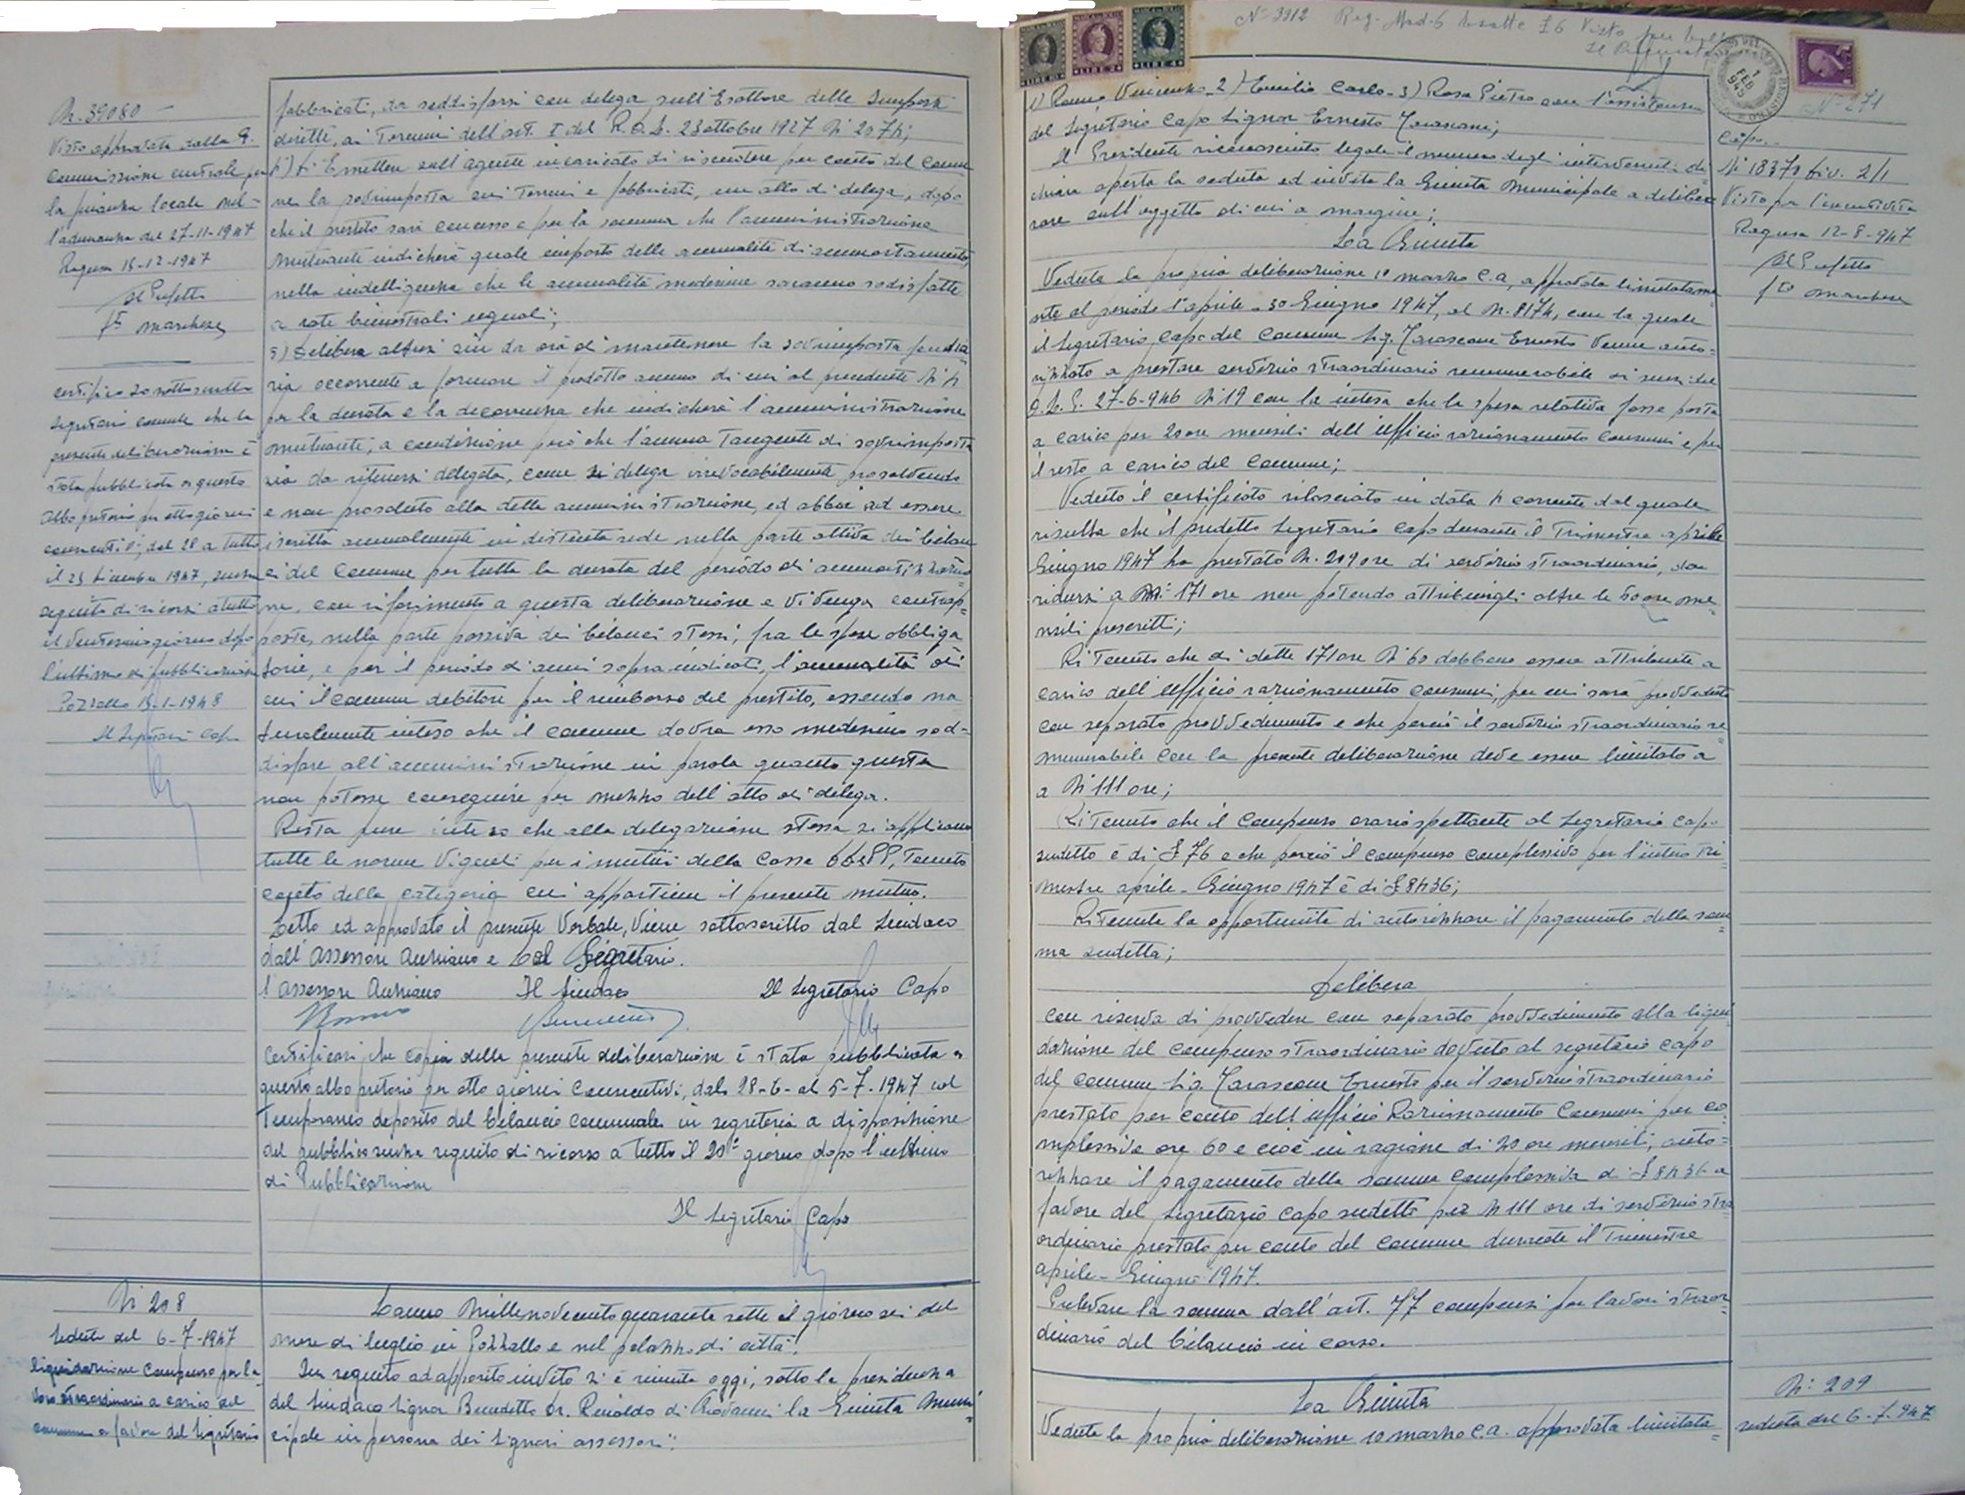 N. 39080 -
Visto approvata dalla G.
Commissione centrale per
la finanza locale nel-
l'adunanza del 27-11-1947
Ragusa 15-12-1947
Il Prefetto
fto Marchese
Certifico io sottoscritto
Segretario comunale che la
presente deliberazione è
stata pubblicata a questo
albo pretorio per otto giorni
consecutivi, dal 28 a tutto
il 23 dicembre 1947, senza
seguito di ricorsi a tutto
il ventesimo giorno dopo
l'ultimo di pubblicazione
Pozzallo 13-1-1948
Il Segretario Capo
fabbricati, da soddisfarsi con delega sull'Esattore delle Imposte
dirette, ai termini dell'art. I del R.D.L. 23 ottobre 1927 N. 2074;
Emettere sull'agente incaricato di riscuotere per conto del Comu
ne la sovrimposta sui terreni e fabbricati, un atto di delega, dopo
che il prestito sarà concesso e per la somma che l'amministrazione
mutuante indicherà quale importo delle annualità di ammortamento,
nella intelligenza che le annualità medesime saranno sodisfatte
a rate bimestrali uguali;
5) Delibera altresì sin da ora di mantenere la sovrimposta fondia
ria occorrente a formare il prodotto annuo di cui al precedente N. 4
per la durata e la decorrenza che indicherà l'amministrazione
mutuante, a condizione però che l'annua tangente di sovrimposta
sia da ritenersi delegata, come si delega irrevocabilmente prosolvendo
e non prosoluto alla detta amministrazione, ed abbia ad essere
iscritta annualmente in distinta sede nella parte attiva dei bilan
ci del Comune per tutta la durata del periodo di ammortizzazio=
ne, con riferimento a questa deliberazione e venga contrap=
posta, nella parte passiva dei bilanci stessi, fra le spese obbliga
torie, e per il periodo di anni sopra indicati, l'annualità di
cui il Comune debitore per il rimborso del prestito, essendo na
turalmente inteso che il comune dovrà esso medesimo sod-
disfare all'amministrazione in parola quanto questa
non potesse conseguire per mezzo dell'atto di delega.
Resta pure inteso che alla delegazione stessa si applicano
tutte le norme vigenti per i mutui della Cassa DD.PP., tenuto
conto della categoria cui appartiene il presente mutuo.
Letto ed approvato il presente Verbale, viene sottoscritto dal Sindaco
dall'Assessore Anziano e dal Segretario.
L'Assessore Anziano Il Sindaco Il Segretario Capo
Certificasi che copia della presente deliberazione è stata pubblicata a
questo albo pretorio per otto giorni consecutivi, dal 28-6- al 5-7-1947 col
temporaneo deposito del bilancio comunale in segreteria a disposizione
del pubblico senza seguito di ricorso a tutto il 20° giorno dopo l'ultimo
di Pubblicazione
Il Segretario Capo
N. 208
Seduta del 6-7-1947
Liquidazione compenso per la
voro straordinario a carico del
comune a favore del Segretario
L'anno Millenovecentoquarantasette il giorno sei del
mese di luglio in Pozzallo e nel palazzo di città.
In seguito ad apposito invito si è riunita oggi, sotto la presidenza
del Sindaco Signor Benedetto Dr. Rinaldo di Giovanni la Giunta Muni
cipale in persona dei Signori assessori:
N. 3312 Reg. Mod. 6 esatte £6 Visto per bollo
Il Procuratore
LIRE 2 LIRE 4
1 FEB 1948
N° 271
1) Romeo Vincenzo - 2) Emilio Carlo - 3) Rosa Pietro con l'assistenza
del Segretario Capo Signor Ernesto Tarascone;
Il Presidente riconosciuto legale il numero degli intervenuti di
chiara aperta la seduta ed invita la Giunta Municipale a delibe
rare sull'oggetto di cui a margine;
La Giunta
Veduta la propria deliberazione 10 marzo c.a, approvata limitatame
nte al periodo 1° aprile - 30 Giugno 1947, al N. 8174, con la quale
il Segretario Capo del Comune Sig. Tarascone Ernesto venne auto=
rizzato a prestare servizio straordinario remunerabile ai sensi del
D.L.P. 27-6-946 N. 19 con la intesa che la spesa relativa fosse posta
a carico per 20 ore mensili dell'ufficio razionamento consumi e per
il resto a carico del Comune;
Veduto il certificato rilasciato in data 4 corrente dal quale
risulta che il predetto Segretario Capo durante il trimestre aprile
Giugno 1947 ha prestato N. 209 ore di servizio straordinario, da
ridursi a N. 171 ore non potendo attribuirgli oltre le 60 ore me=
nsili prescritti;
Ritenuto che di dette 171 ore N. 60 debbono essere attribuite a
carico dell'Ufficio razionamento consumi, per cui sarà provveduto
con separato provvedimento e che perciò il servizio straordinario re=
munerabile con la presente deliberazione deve essere limitato a
a N. 111 ore;
Ritenuto che il compenso orario spettante al Segretario Capo
sudetto è di £ 76 e che perciò il compenso complessivo per l'intero tri=
mestre aprile - Giugno 1947 è di £ 8436;
Ritenuta la opportunità di autorizzare il pagamento della som
ma sudetta;
Delibera
Con riserva di provvedere con separato provvedimento alla liqui
dazione del compenso straordinario dovuto al segretario capo
del comune Sig. Tarascone Ernesto per il servizio straordinario
prestato per conto dell'ufficio Razionamento Consumi per co
mplessive ore 60 e cioè in ragione di 20 ore mensili, auto=
rizzare il pagamento della somma complessiva di £ 8436 a
favore del Segretario Capo sudetto per N. 111 ore di servizio stra
ordinario prestato per conto del comune durante il trimestre
aprile - Giugno 1947.
Prelevare la somma dall'art. 77 compensi per lavori straor=
dinari del bilancio in corso.
La Giunta
Veduta la propria deliberazione 10 marzo c.a. approvata limitata=
Capo.
N. 18371 Div. 2/1
Visto per l'esecutività
Ragusa 12-8-947
Il Prefetto
fto Marchese
N. 209
seduta del 6-7-947